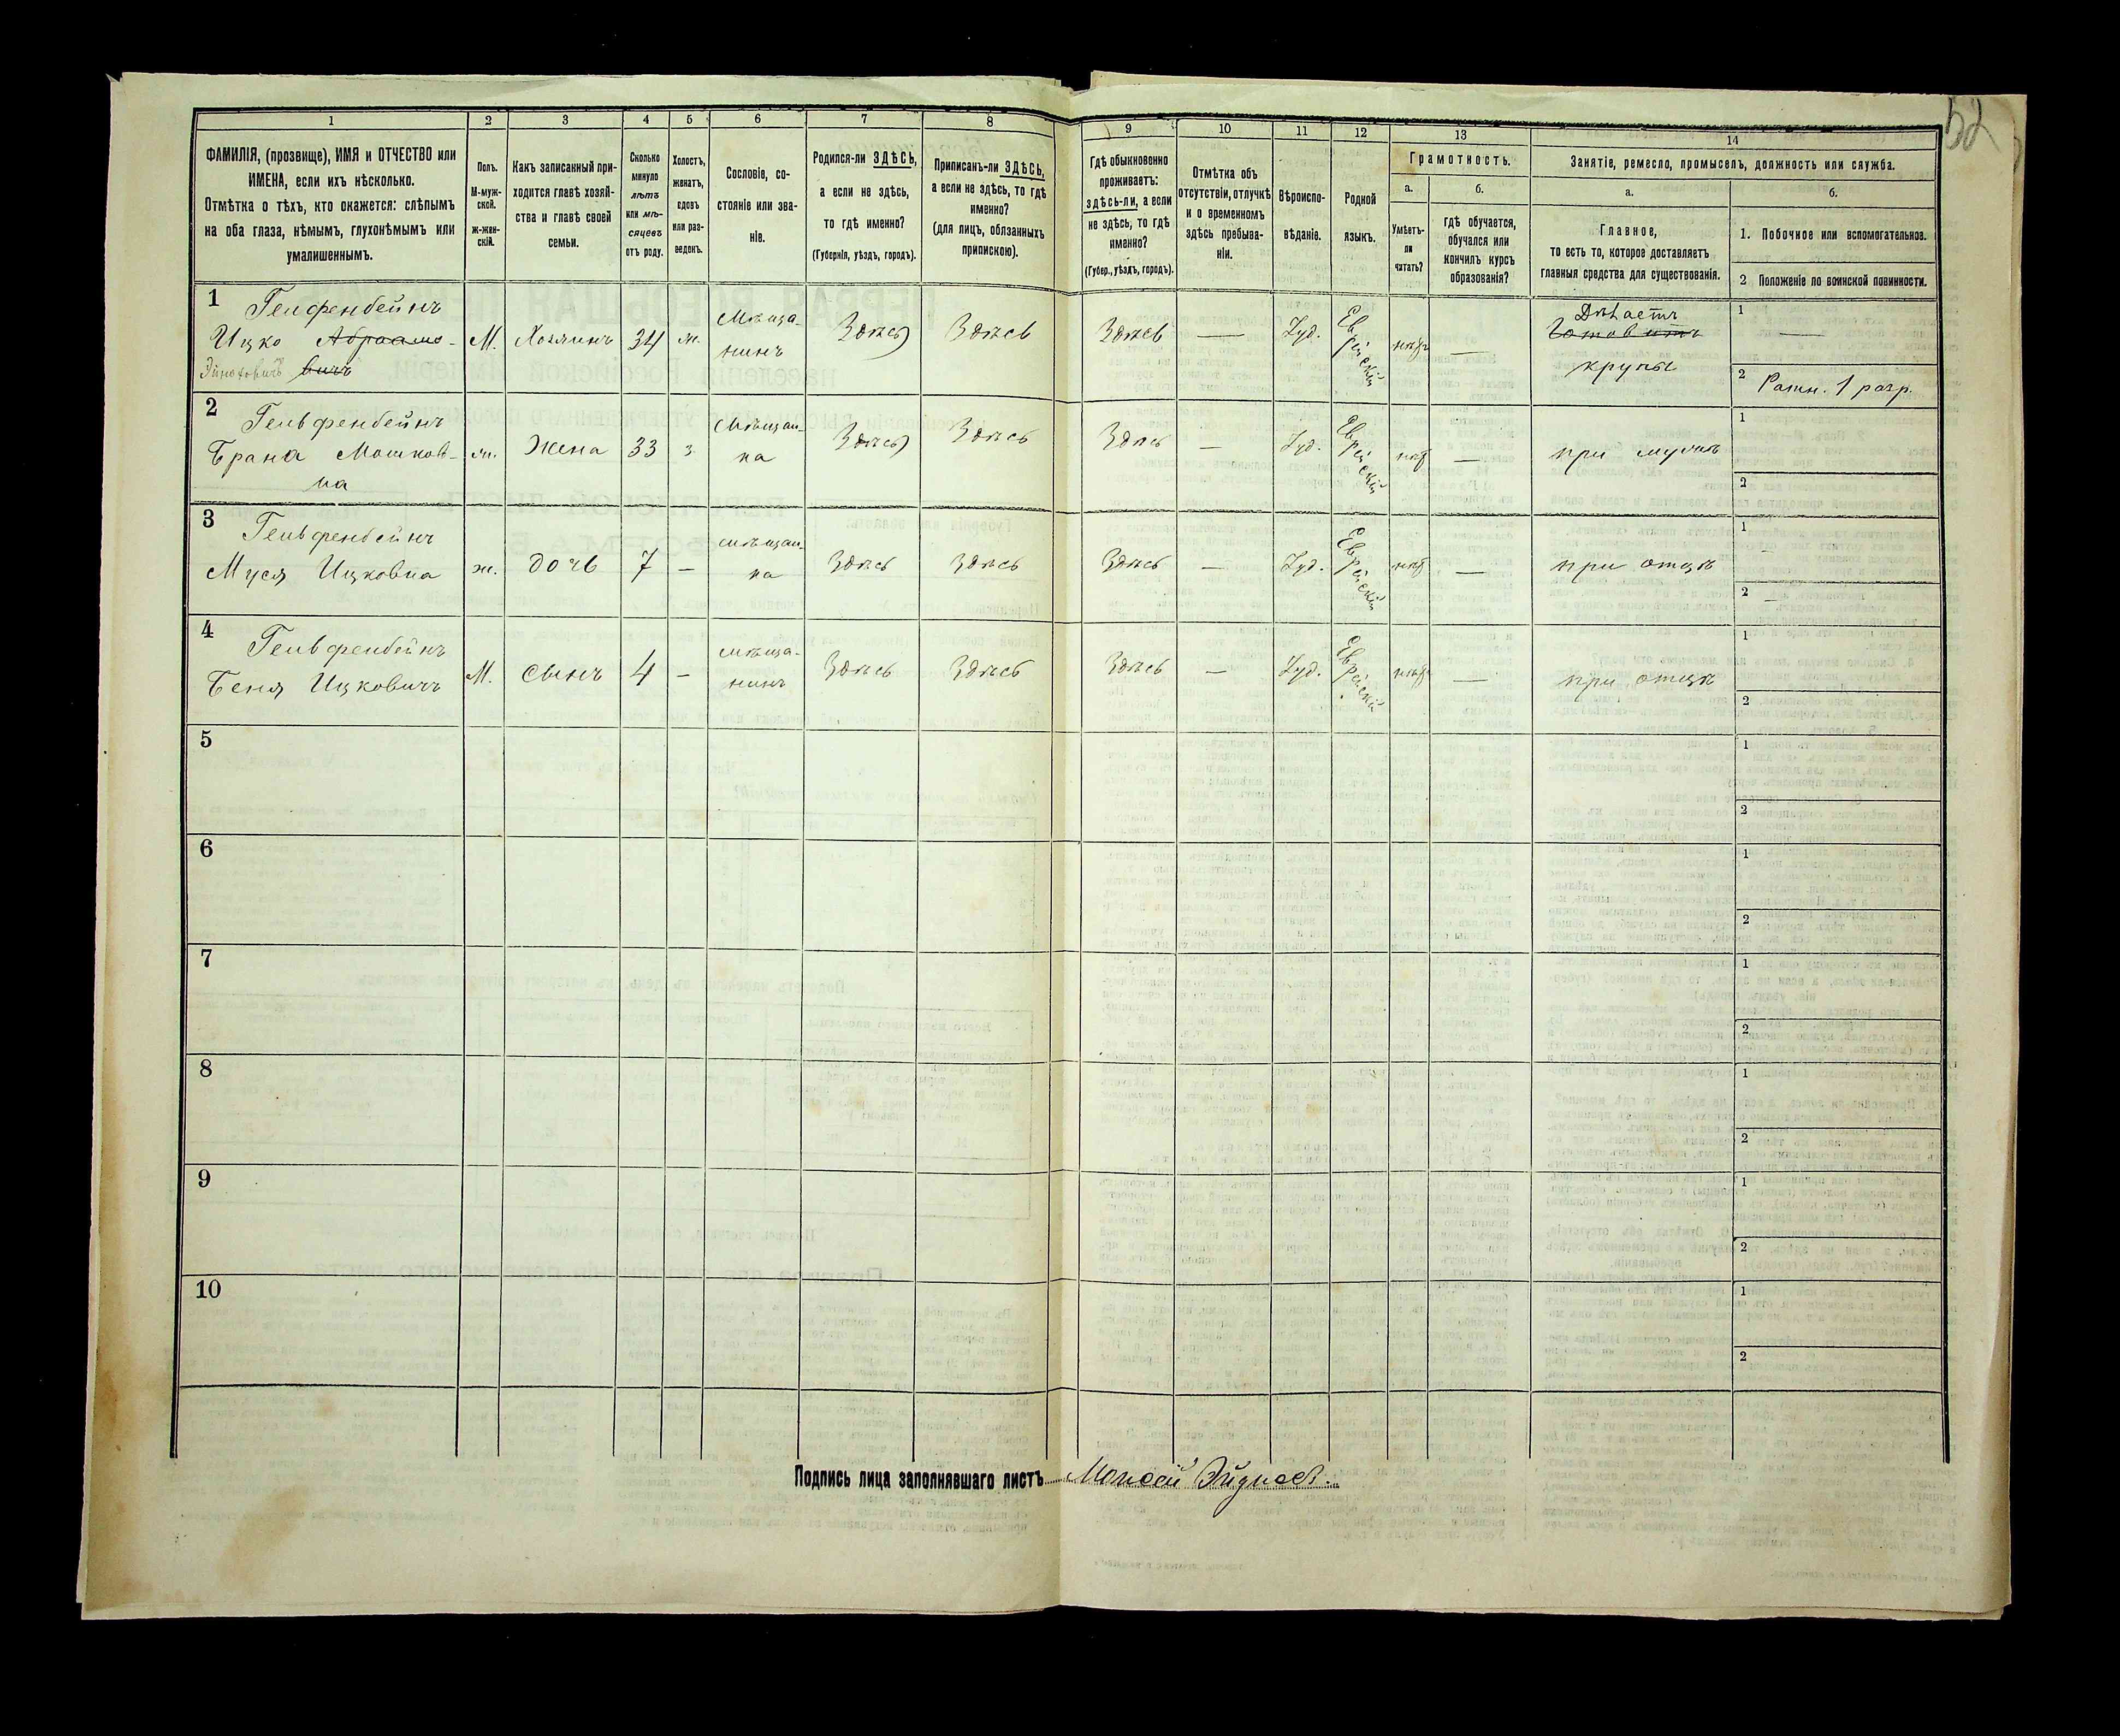 52
1 2 3 4 5 6 7 8 9 10 11 12 13 14
ФАМИЛІЯ, (прозвище), ИМЯ и ОТЧЕСТВО или
ИМЕНА, если ихъ нѣсколько.
Отмѣтка о тѣхъ, кто окажется: слѣпымъ
на оба глаза, нѣмымъ, глухонѣмымъ или
умалишеннымъ.
Полъ.
М-муж-
ской.
ж-жен-
скій.
Какъ записанный при-
ходится главѣ хозяй-
ства и главѣ своей
семьи.
Сколько
минуло
лѣтъ
или мѣ-
сяцевъ
отъ роду.
Холостъ,
женатъ,
вдовъ
или раз-
веденъ.
Сословіе, со-
стояніе или зва-
ніе.
Родился-ли ЗДѢСЬ,
а если не здѣсь,
то гдѣ именно?
(Губернія, уѣздъ, городъ).
Приписанъ-ли ЗДѢСЬ,
а если не здѣсь, то гдѣ
именно?
(для лицъ, обязанныхъ
припискою).
Гдѣ обыкновенно
проживаетъ:
здѣсь-ли, а если
не здѣсь, то гдѣ
именно?
(Губер., уѣздъ, городъ).
Отмѣтка объ
отсутствіи, отлучкѣ
и о временномъ
здѣсь пребыва-
ніи.
Вѣроиспо-
вѣданіе.
Родной
языкъ.
Грамотность.
а.
Умѣетъ-
ли
читать?
б.
гдѣ обучается,
обучался или
кончилъ курсъ
образованія?
Занятіе, ремесло, промыселъ, должность или служба.
а.
Главное,
то есть то, которое доставляетъ
главныя средства для существованія.
б.
1. Побочное или вспомогательное.
2 Положеніе по воинской повинности.
1 Гелфенбейнъ
Ицко Абрамо-
вичъ
М. Хозяинъ 34 ж. Мѣща-
нинъ
Здѣсь Здѣсь Здѣсь — Іуд. Еврейскій нѣтъ —
Дѣлаетъ
Готовитъ
крупы
1 —
2 Ратн. 1 разр.
2 Гельфенбейнъ
Брана Мошков-
на
ж. Жена 33 з. Мѣщан-
ка
Здѣсь Здѣсь Здѣсь — Іуд. Еврейскій нѣтъ — при мужѣ
1
2
3 Гельфенбейнъ
Муся Ицковна
ж. дочь 7 — мѣщан-
ка
Здѣсь Здѣсь Здѣсь — Іуд. Еврейскій нѣтъ — при отцѣ
1 —
2 —
4 Гельфенбейнъ
Беня Ицковичъ
М. сынъ 4 — мѣща-
нинъ
Здѣсь Здѣсь Здѣсь — Іуд. Еврейскій нѣтъ — при отцѣ
1
2
5 1
2
6 1
2
7 1
2
8 1
2
9 1
2
10 1
2
Подпись лица заполнявшаго листъ